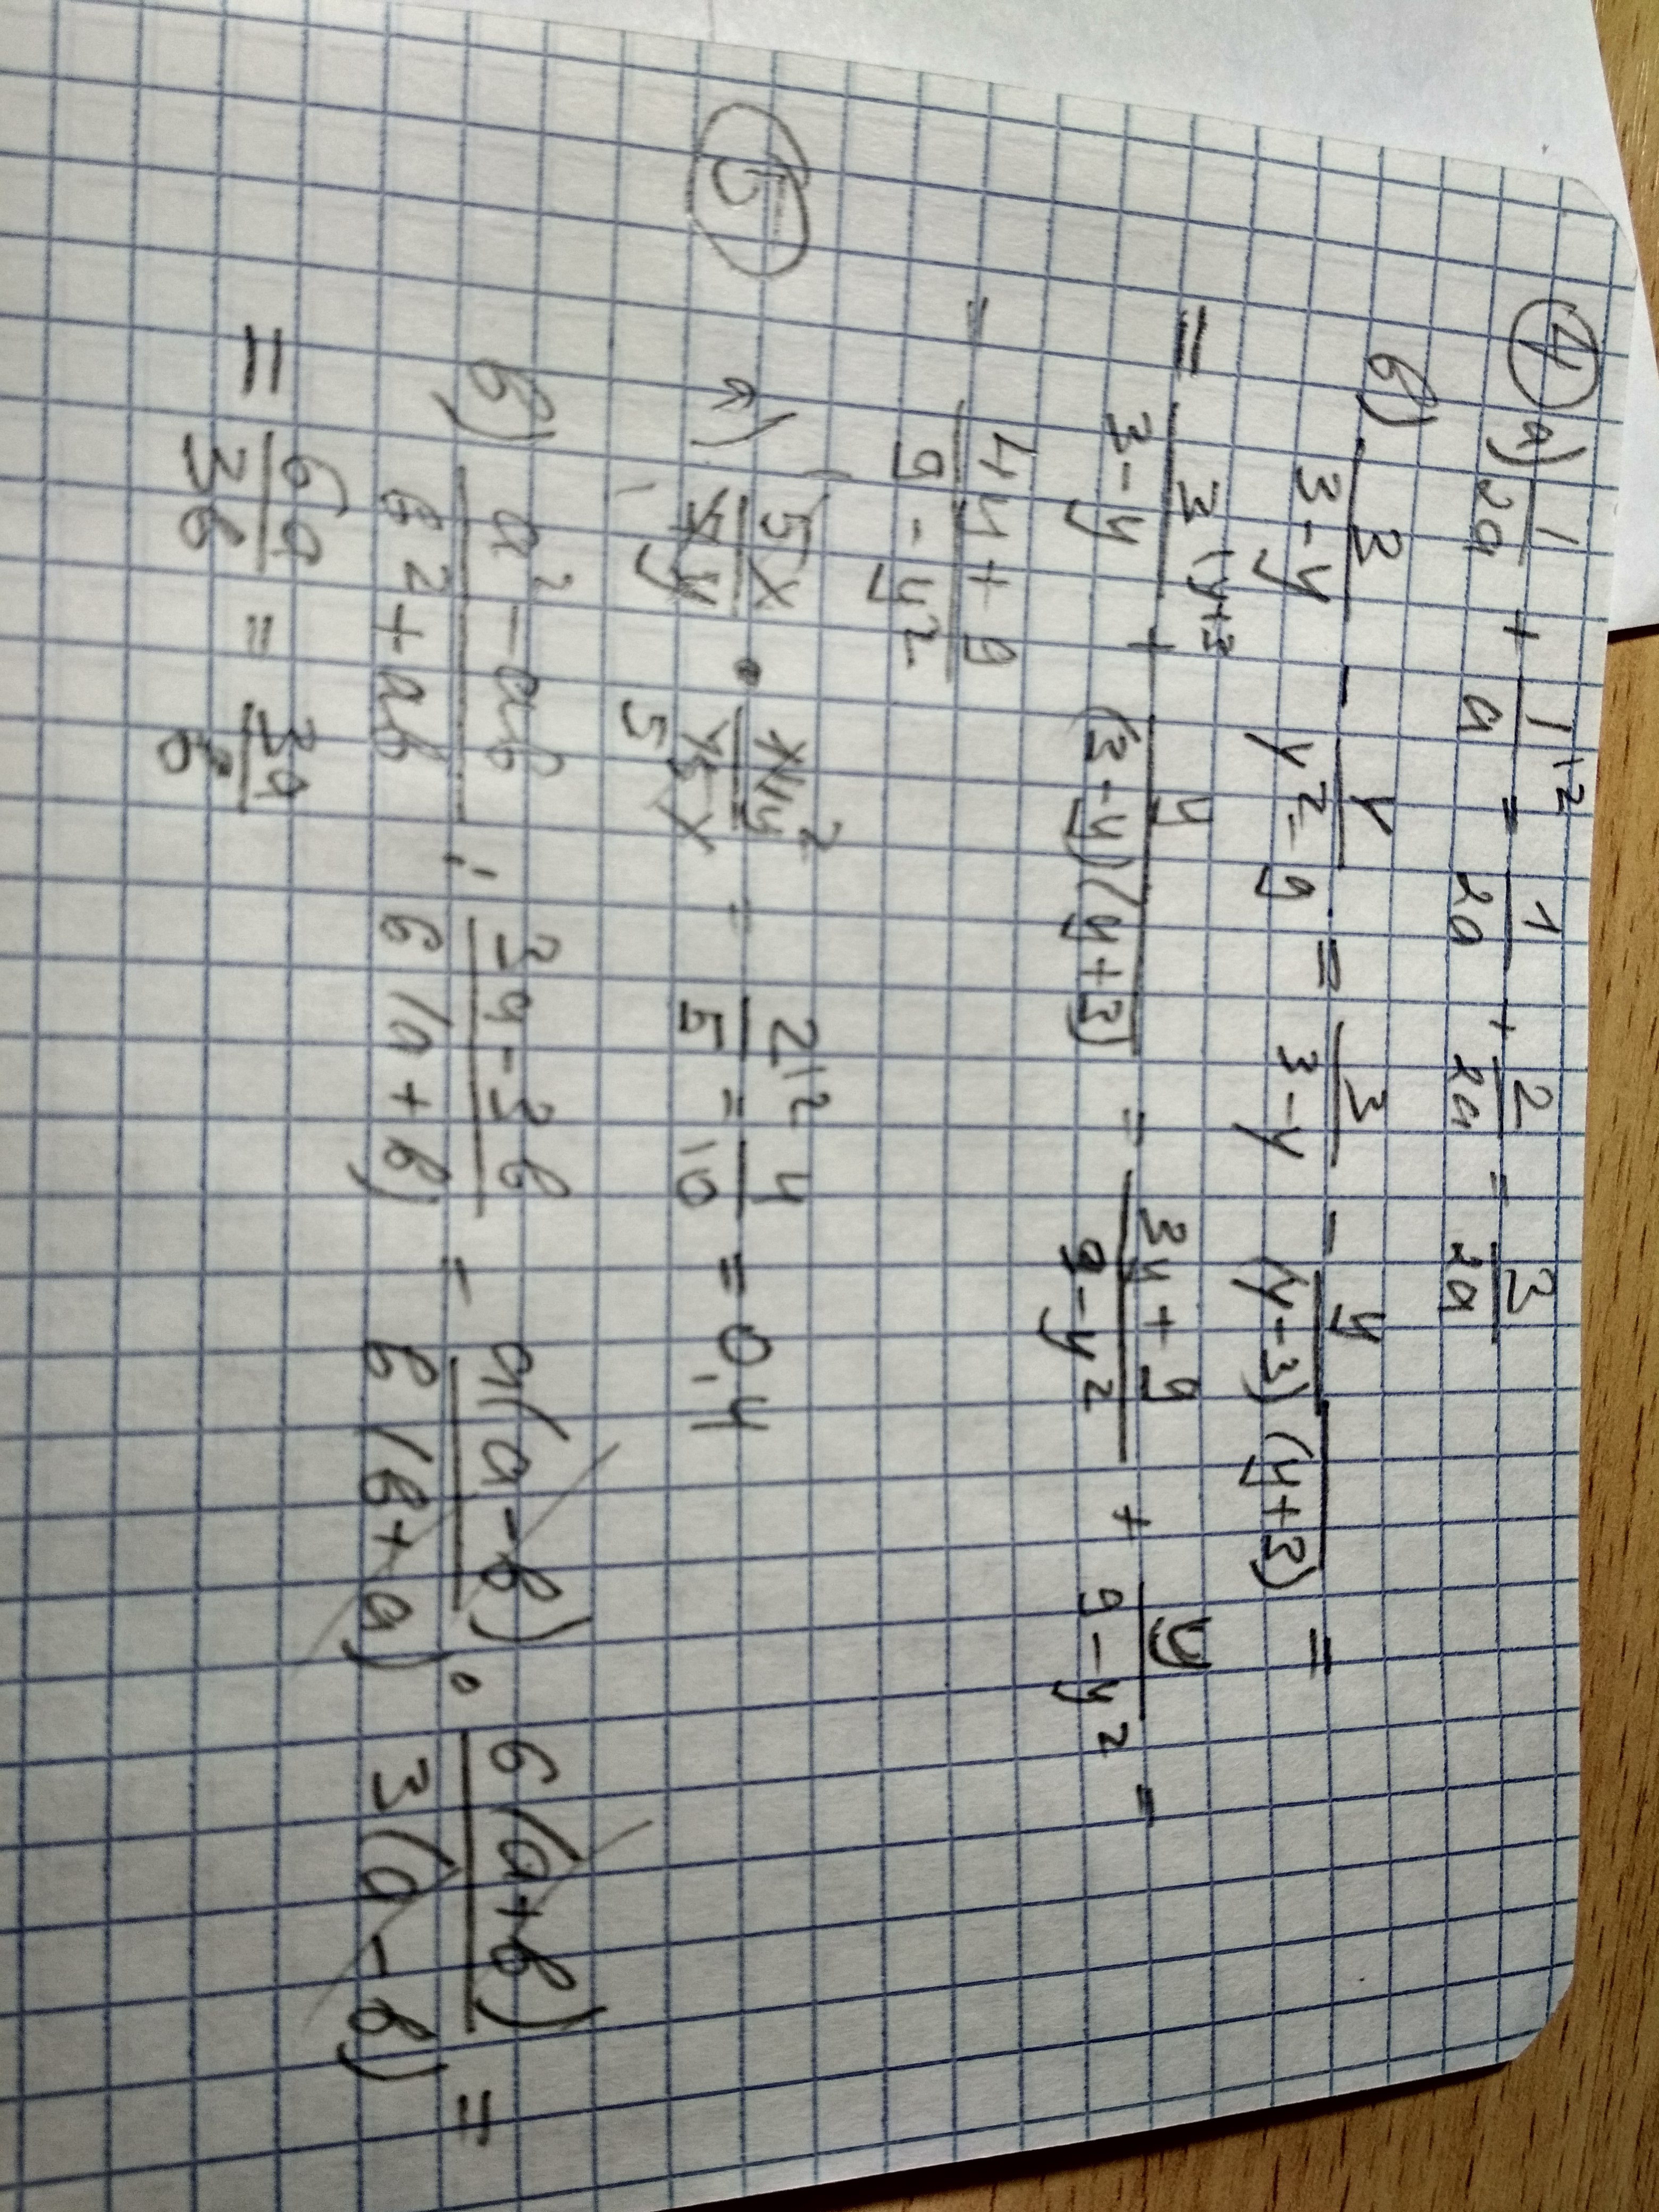 ④ а) 1/2a + 1^{12}/a = 1/2a + 2/2a = 3/2a
б) 3/(3-y) - y/(y²-9) = 3/(3-y) - y/((y-3)(y+3)) =
= 3^{(y+3}/(3-y) + y/((3-y)(y+3)) = (3y+9)/(9-y²) + y/(9-y²) =
= (4y+9)/(9-y²)
⑤ а) 5x/y · y²/x = 2^{12}/5 = 4/10 = 0,4
б) (a²-ab)/(b²+ab) : (3a-3b)/(6(a+b)) = a(a-b)/(b(b+a)) · 6(a+b)/(3(a-b)) =
= 6a/3b = a/b